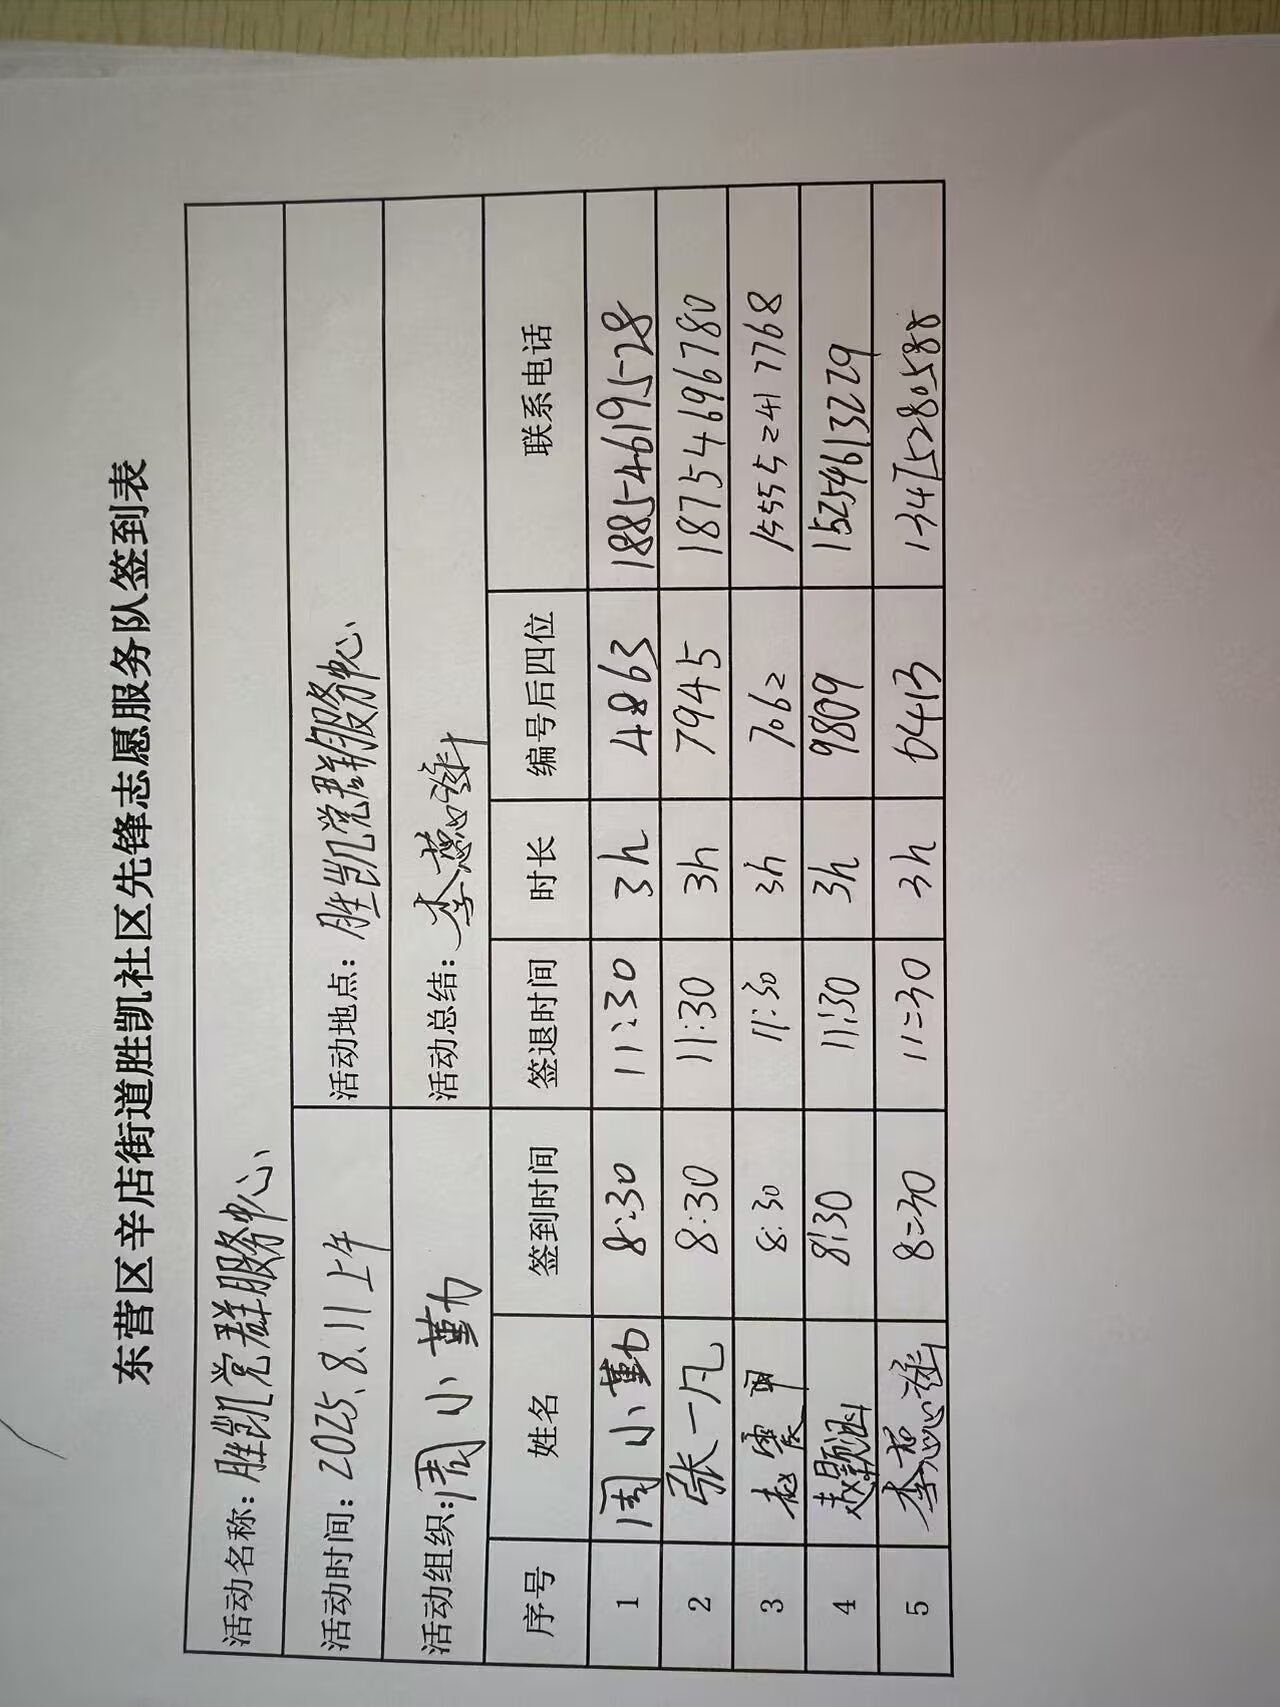 东营区辛店街道胜凯社区先锋志愿服务队签到表
活动名称：胜凯党群服务中心
活动时间：2025.8.11上午 活动地点：胜凯党群服务中心
活动组织：周小勤 活动总结：李蕊
序号 姓名 签到时间 签退时间 时长 编号后四位 联系电话
1 周小勤 8:30 11:30 3h 4863 18854619528
2 张一凡 8:30 11:30 3h 7945 18754696780
3 赵震 8:30 11:30 3h 7062 15552417768
4 赵颖涵 8:30 11:30 3h 9809 15254613229
5 李蕊 8:30 11:30 3h 6413 13475280588